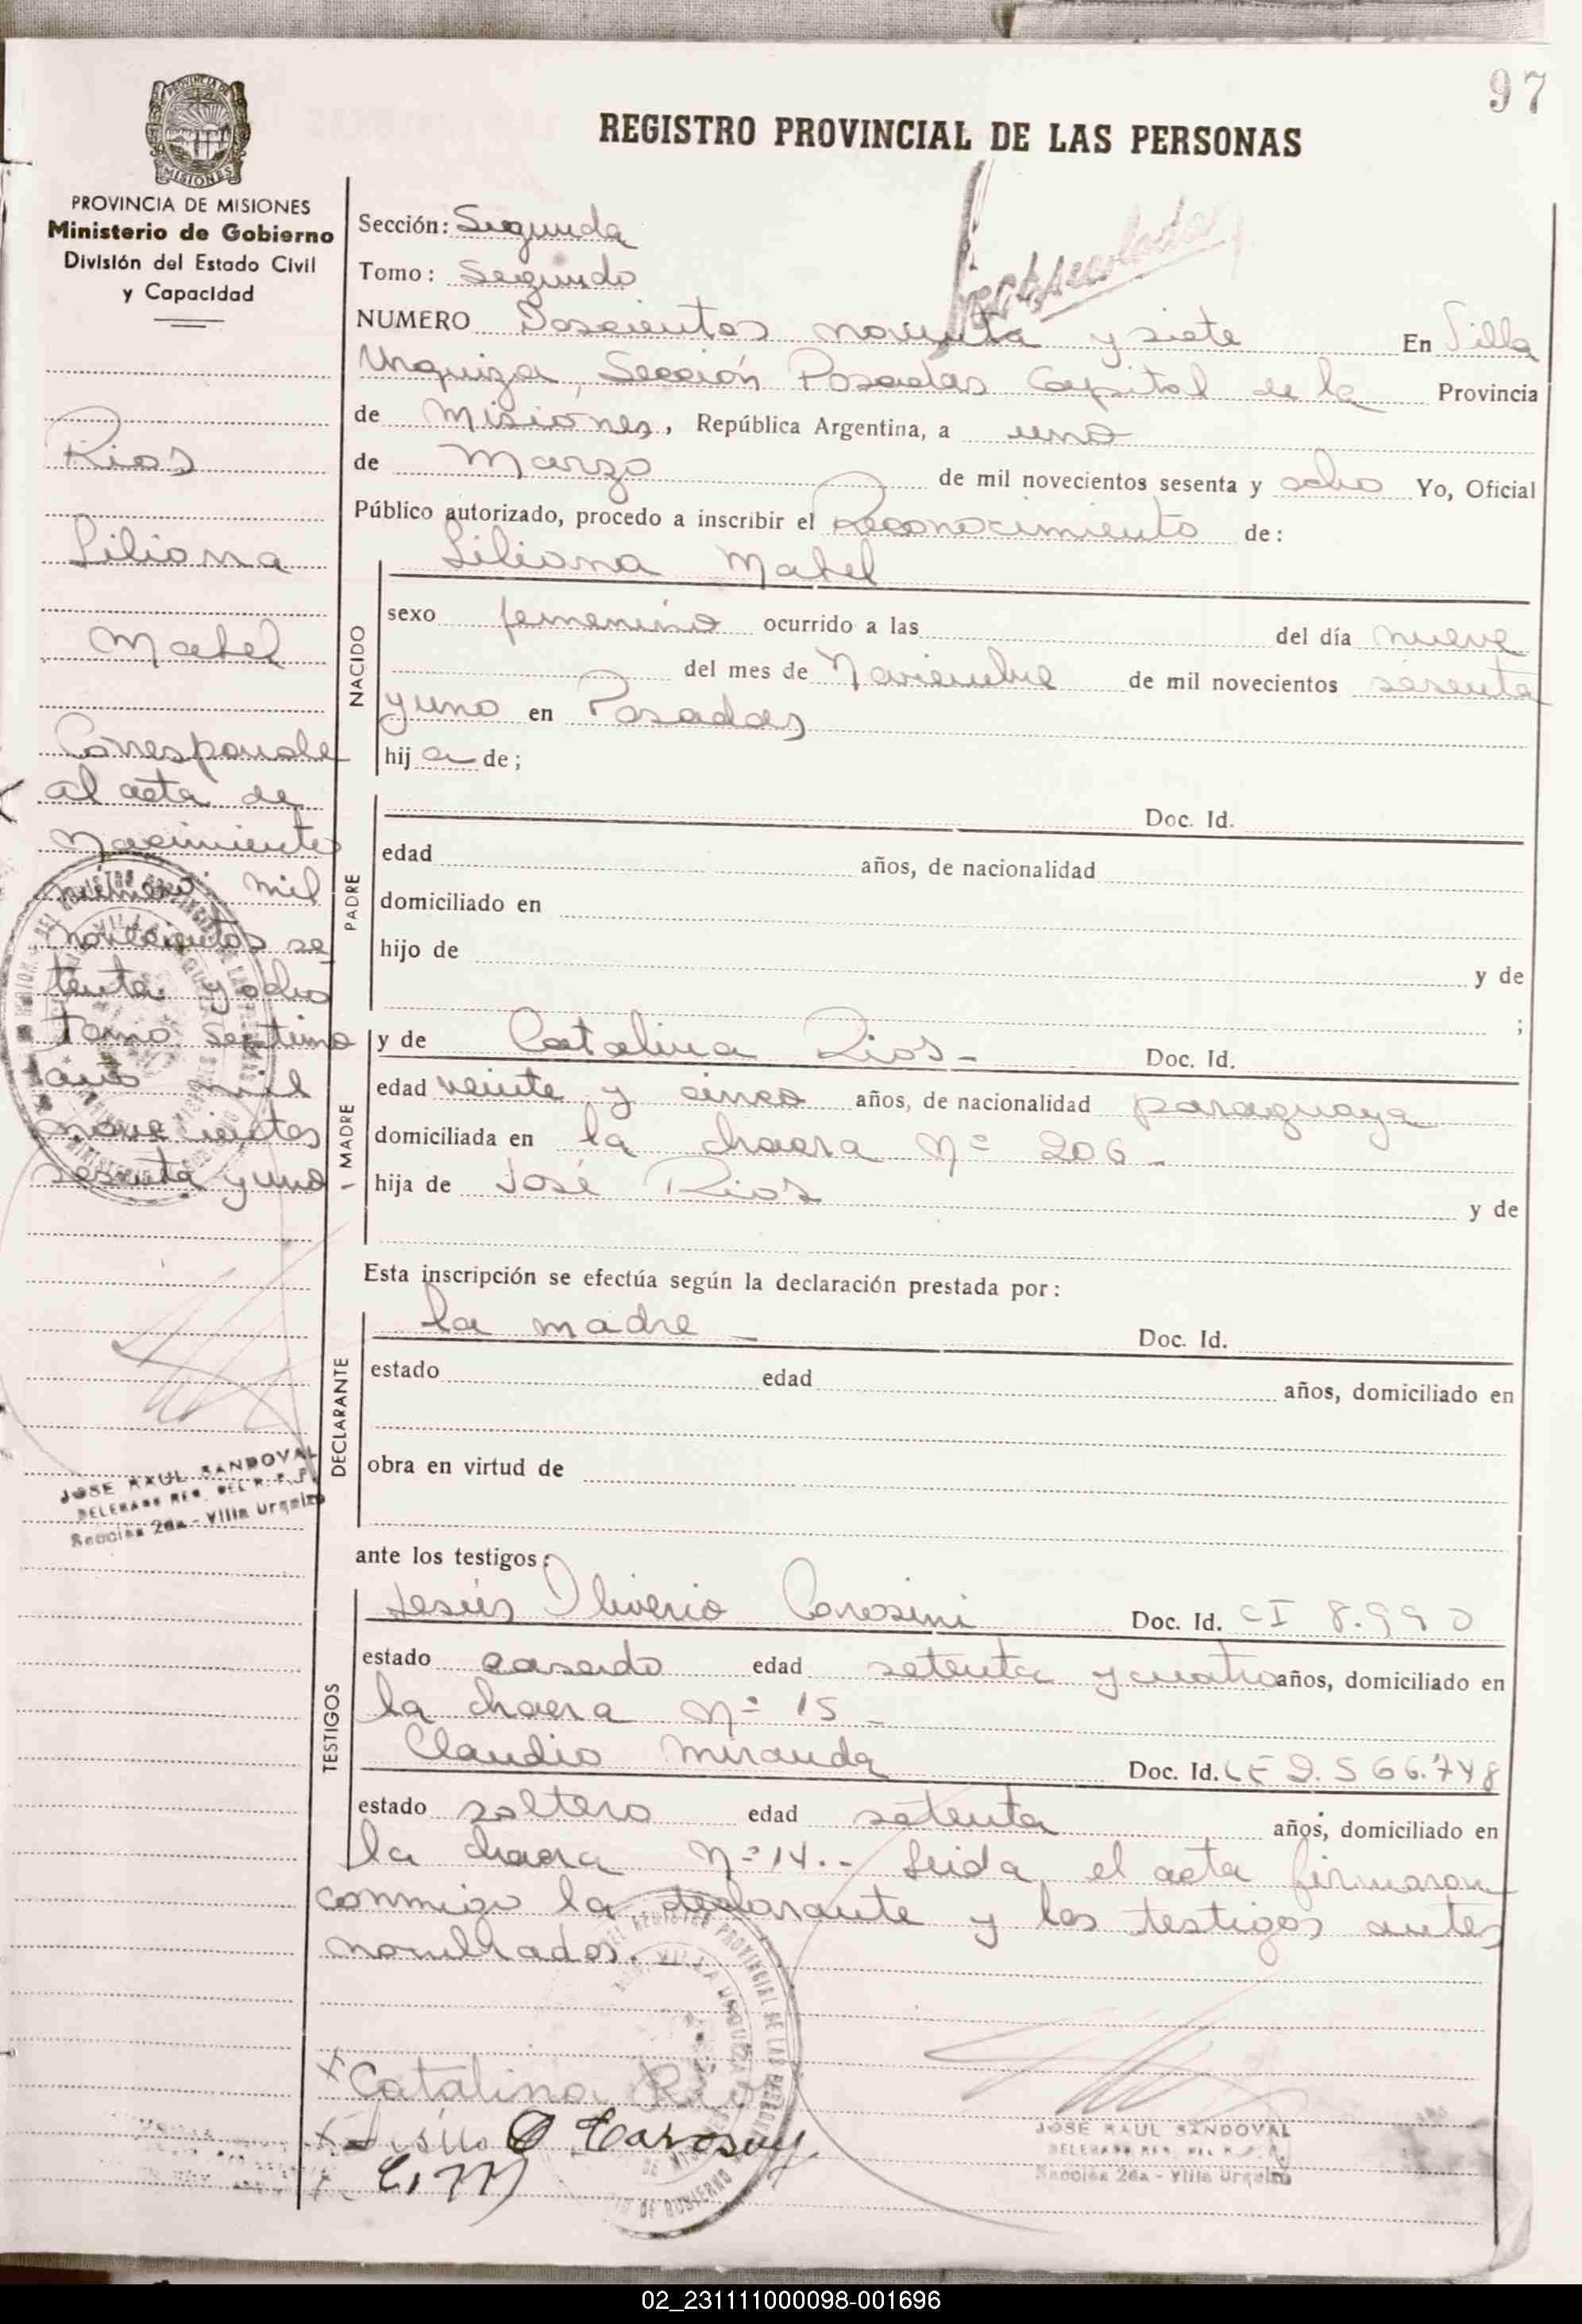 97
REGISTRO PROVINCIAL DE LAS PERSONAS
PROVINCIA DE MISIONES
Ministerio de Gobierno
División del Estado Civil
y Capacidad
Rios
Liliana
Mabel
Corresponde
al acta de
Nacimiento
número: mil
novecientos se
tenta y ocho
Tomo Septimo
año mil
nove cientos
sesenta y uno
JOSE RAUL SANDOVAL
DELEGADO REG. DEL R. P. P.
Sección 2da - Villa Urquiza
Sección: Segunda
Tomo: Segundo
NUMERO Doscientos noventa y siete En Villa
Urquiza, Sección Posadas Capital de la Provincia
de Misiones, República Argentina, a uno
de Marzo de mil novecientos sesenta y ocho Yo, Oficial
Público autorizado, procedo a inscribir el Reconocimiento de:
Liliana Mabel
NACIDO
sexo femenino ocurrido a las del día nueve
del mes de Noviembre de mil novecientos sesenta
y uno en Posadas
hij a de;
PADRE
Doc. Id.
edad años, de nacionalidad
domiciliado en
hijo de y de
;
MADRE
y de Catalina Rios - Doc. Id.
edad veinte y cinco años, de nacionalidad paraguaya
domiciliada en la chacra Nº 206 -
hija de José Rios y de
Esta inscripción se efectúa según la declaración prestada por:
DECLARANTE
la madre - Doc. Id.
estado edad años, domiciliado en
obra en virtud de
ante los testigos:
TESTIGOS
Jesús Oliverio Doc. Id. CI 8.990
estado casado edad setenta y cuatro años, domiciliado en
la chacra Nº 15 -
Claudio Miranda Doc. Id. LE 2.566.748
estado soltero edad setenta años, domiciliado en
la chacra Nº 14.- Leida el acta firmaron
conmigo la declarante y los testigos antes
nombrados.
Catalina Rios
C. M
JOSE RAUL SANDOVAL
DELEGADO REG. DEL R. P. P.
Sección 2da - Villa Urquiza
02_231111000098-001696